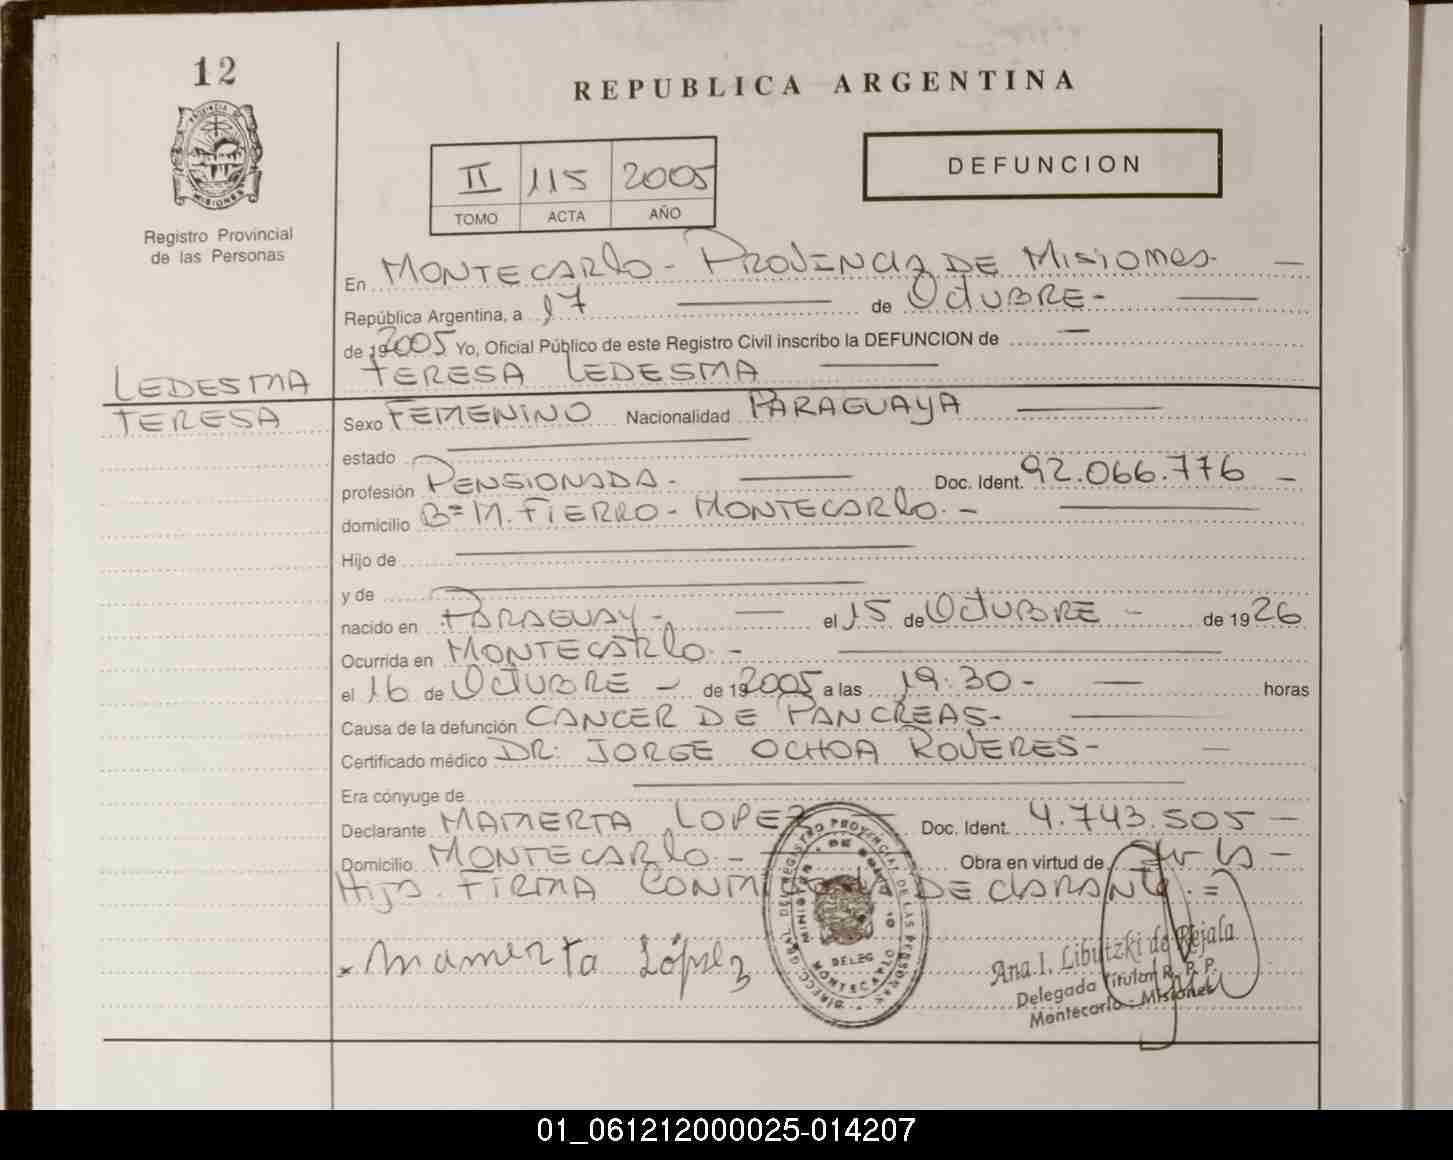 12
PROVINCIA DE
MISIONES
Registro Provincial
de las Personas
REPUBLICA ARGENTINA
II 115 2005
TOMO ACTA AÑO
DEFUNCION
En MONTECARLO - PROVINCIA DE MISIONES -
República Argentina, a 17 de OCTUBRE -
de 19 2005 Yo, Oficial Público de este Registro Civil inscribo la DEFUNCION de
TERESA LEDESMA
LEDESMA
TERESA
Sexo FEMENINO Nacionalidad PARAGUAYA
estado
profesión PENSIONADA - Doc. Ident. 92.066.776 -
domicilio Bº M. FIERRO - MONTECARLO. -
Hijo de
y de
nacido en PARAGUAY - el 15 de OCTUBRE - de 1926
Ocurrida en MONTECARLO. -
el 16 de OCTUBRE - de 19 2005 a las 19.30 - horas
Causa de la defunción CANCER DE PANCREAS -
Certificado médico DR: JORGE OCHOA ROVERES -
Era cónyuge de
Declarante MAMERTA LOPEZ Doc. Ident. 4.743.505 -
Domicilio MONTECARLO. - Obra en virtud de
Hija. FIRMA DECLARANTE. =
x Mamerta López
DIRECC. GRAL. DEL REGISTRO PROVINCIAL DE LAS PERSONAS
DELEG
MONTECARLO
Ana I. Libutzki de Rejala
Delegada Titular R. P. P.
Montecarlo - Misiones
01_061212000025-014207